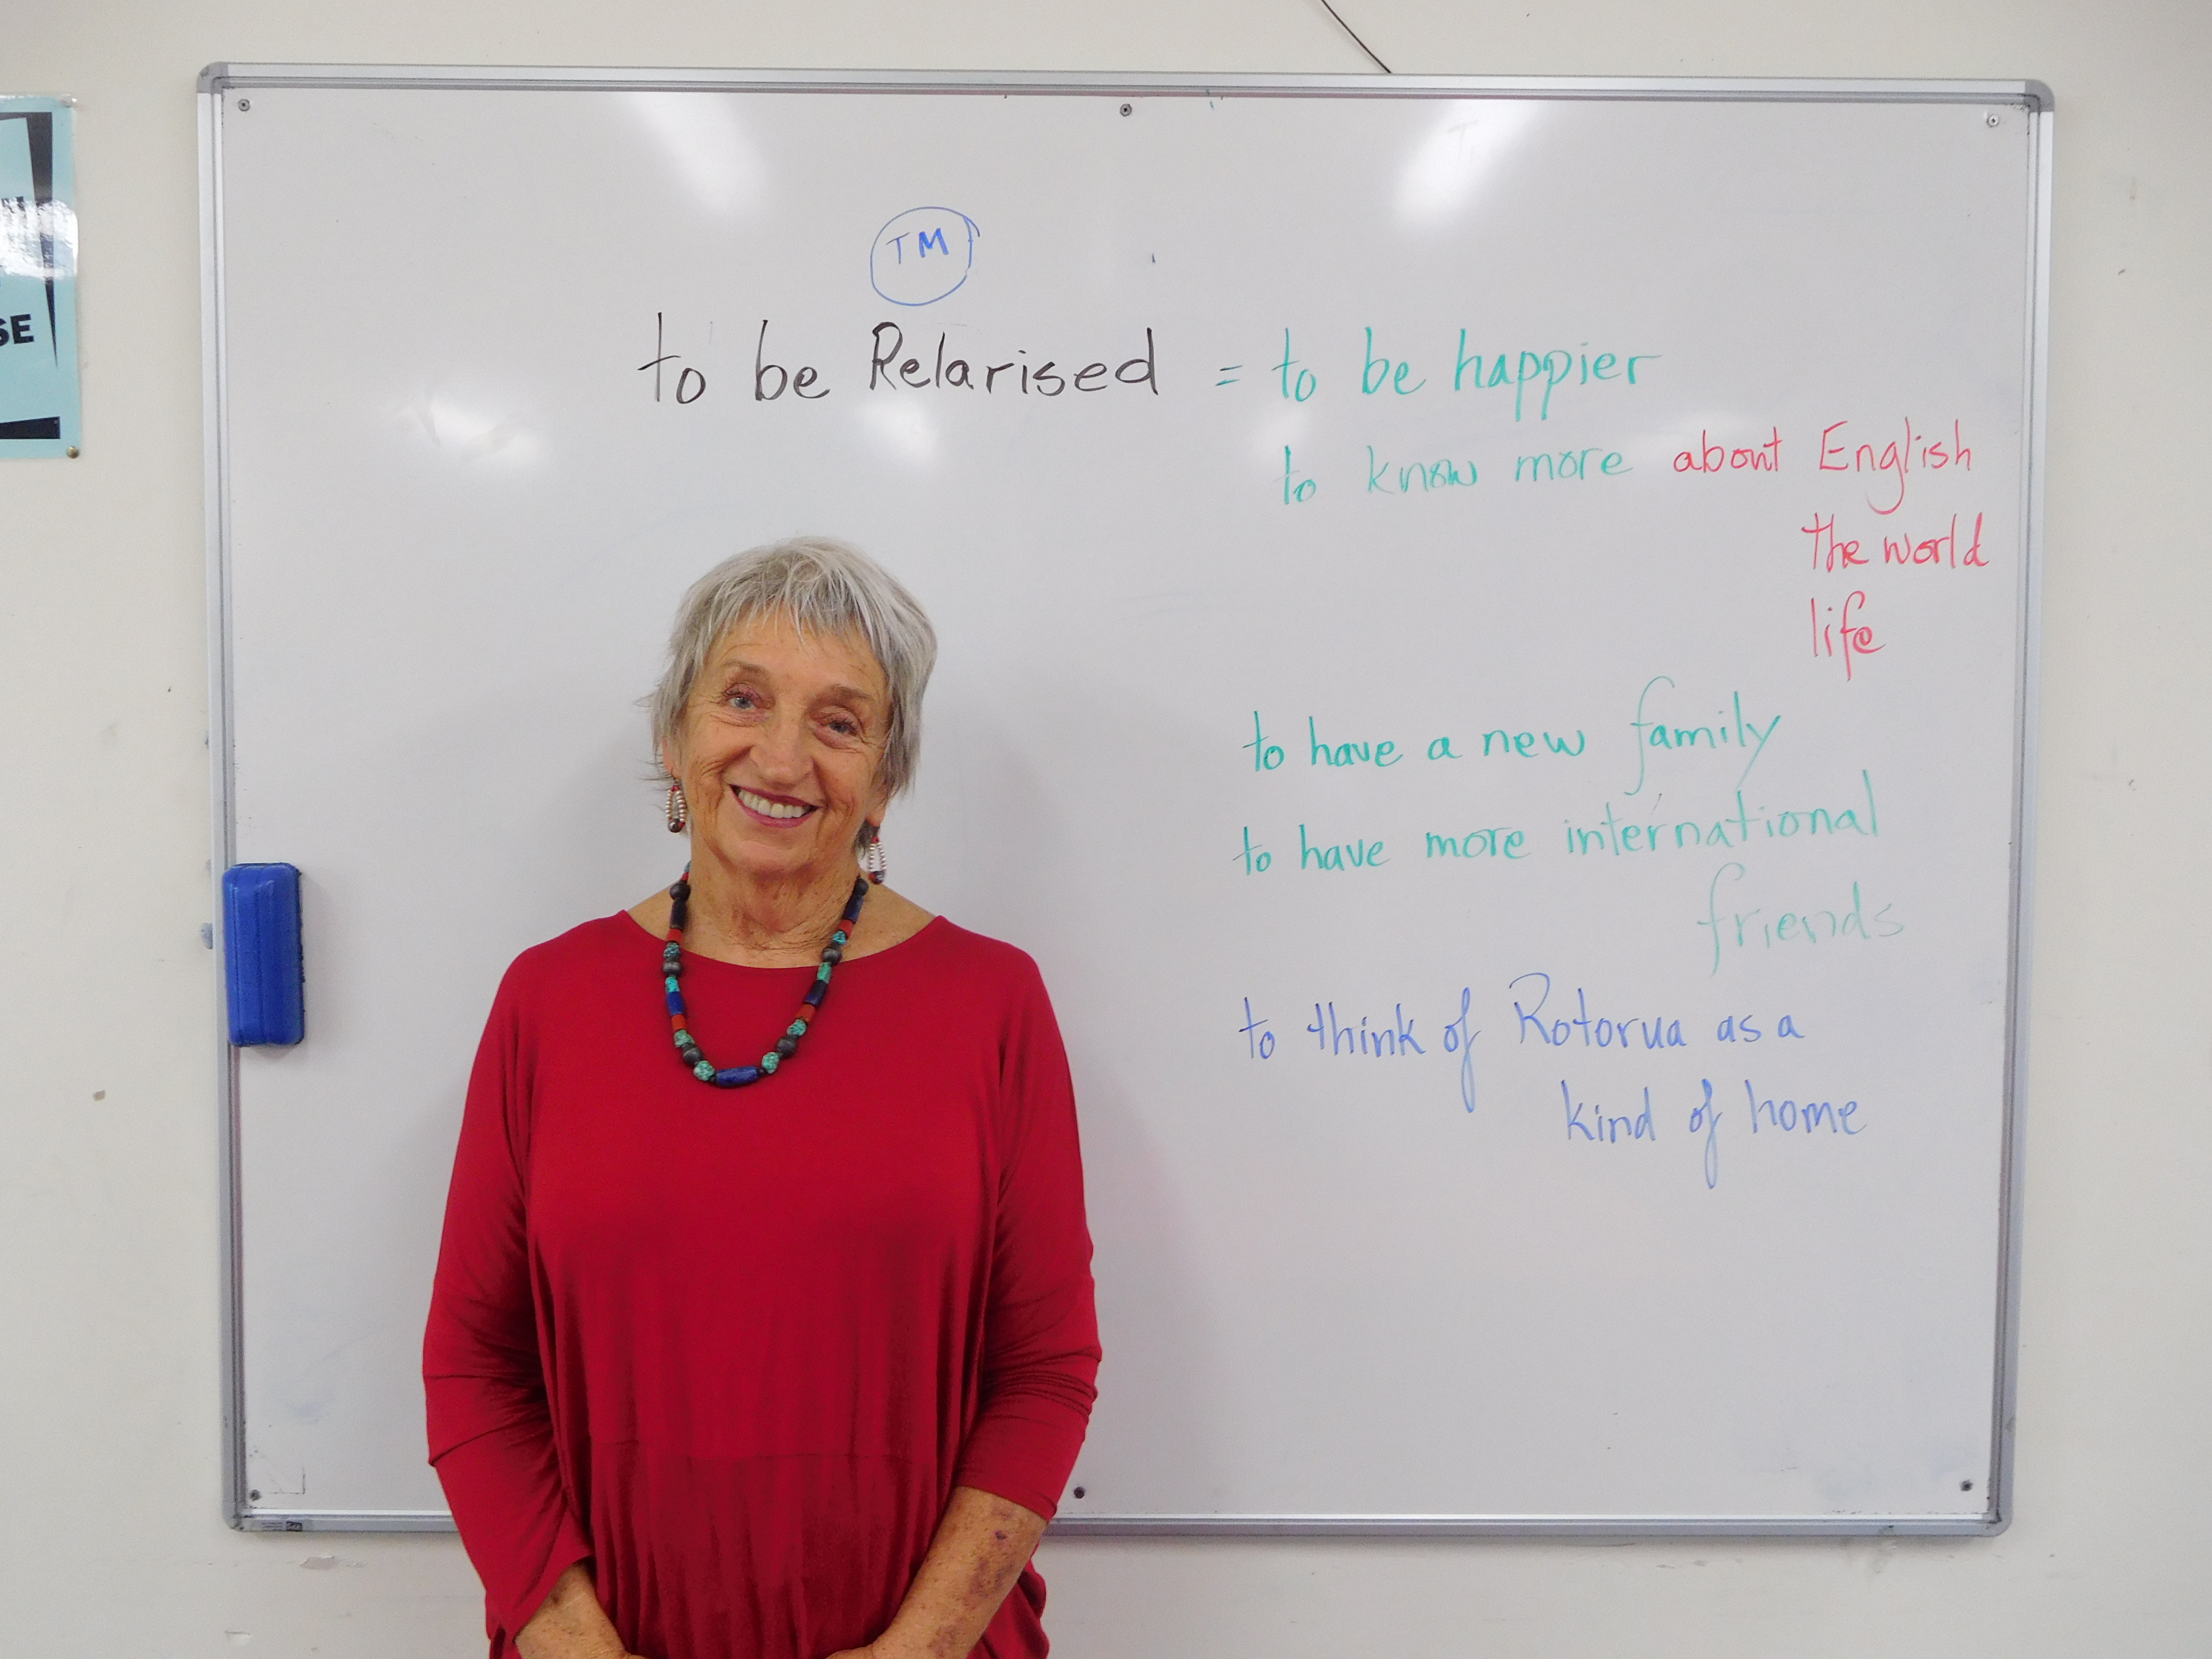 TM
to be Relarised = to be happier
to know more about English
the world
life
to have a new family
to have more international
friends
to think of Rotorua as a
kind of home
SE